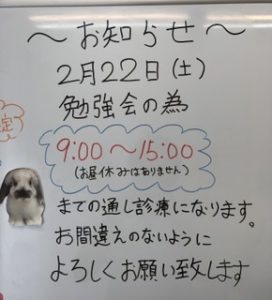 ～お知らせ～
2月22日(土)
勉強会の為
9:00～15:00
(お昼休みはありません)
までの通し診療になります。
お間違えのないように
よろしくお願い致します
定